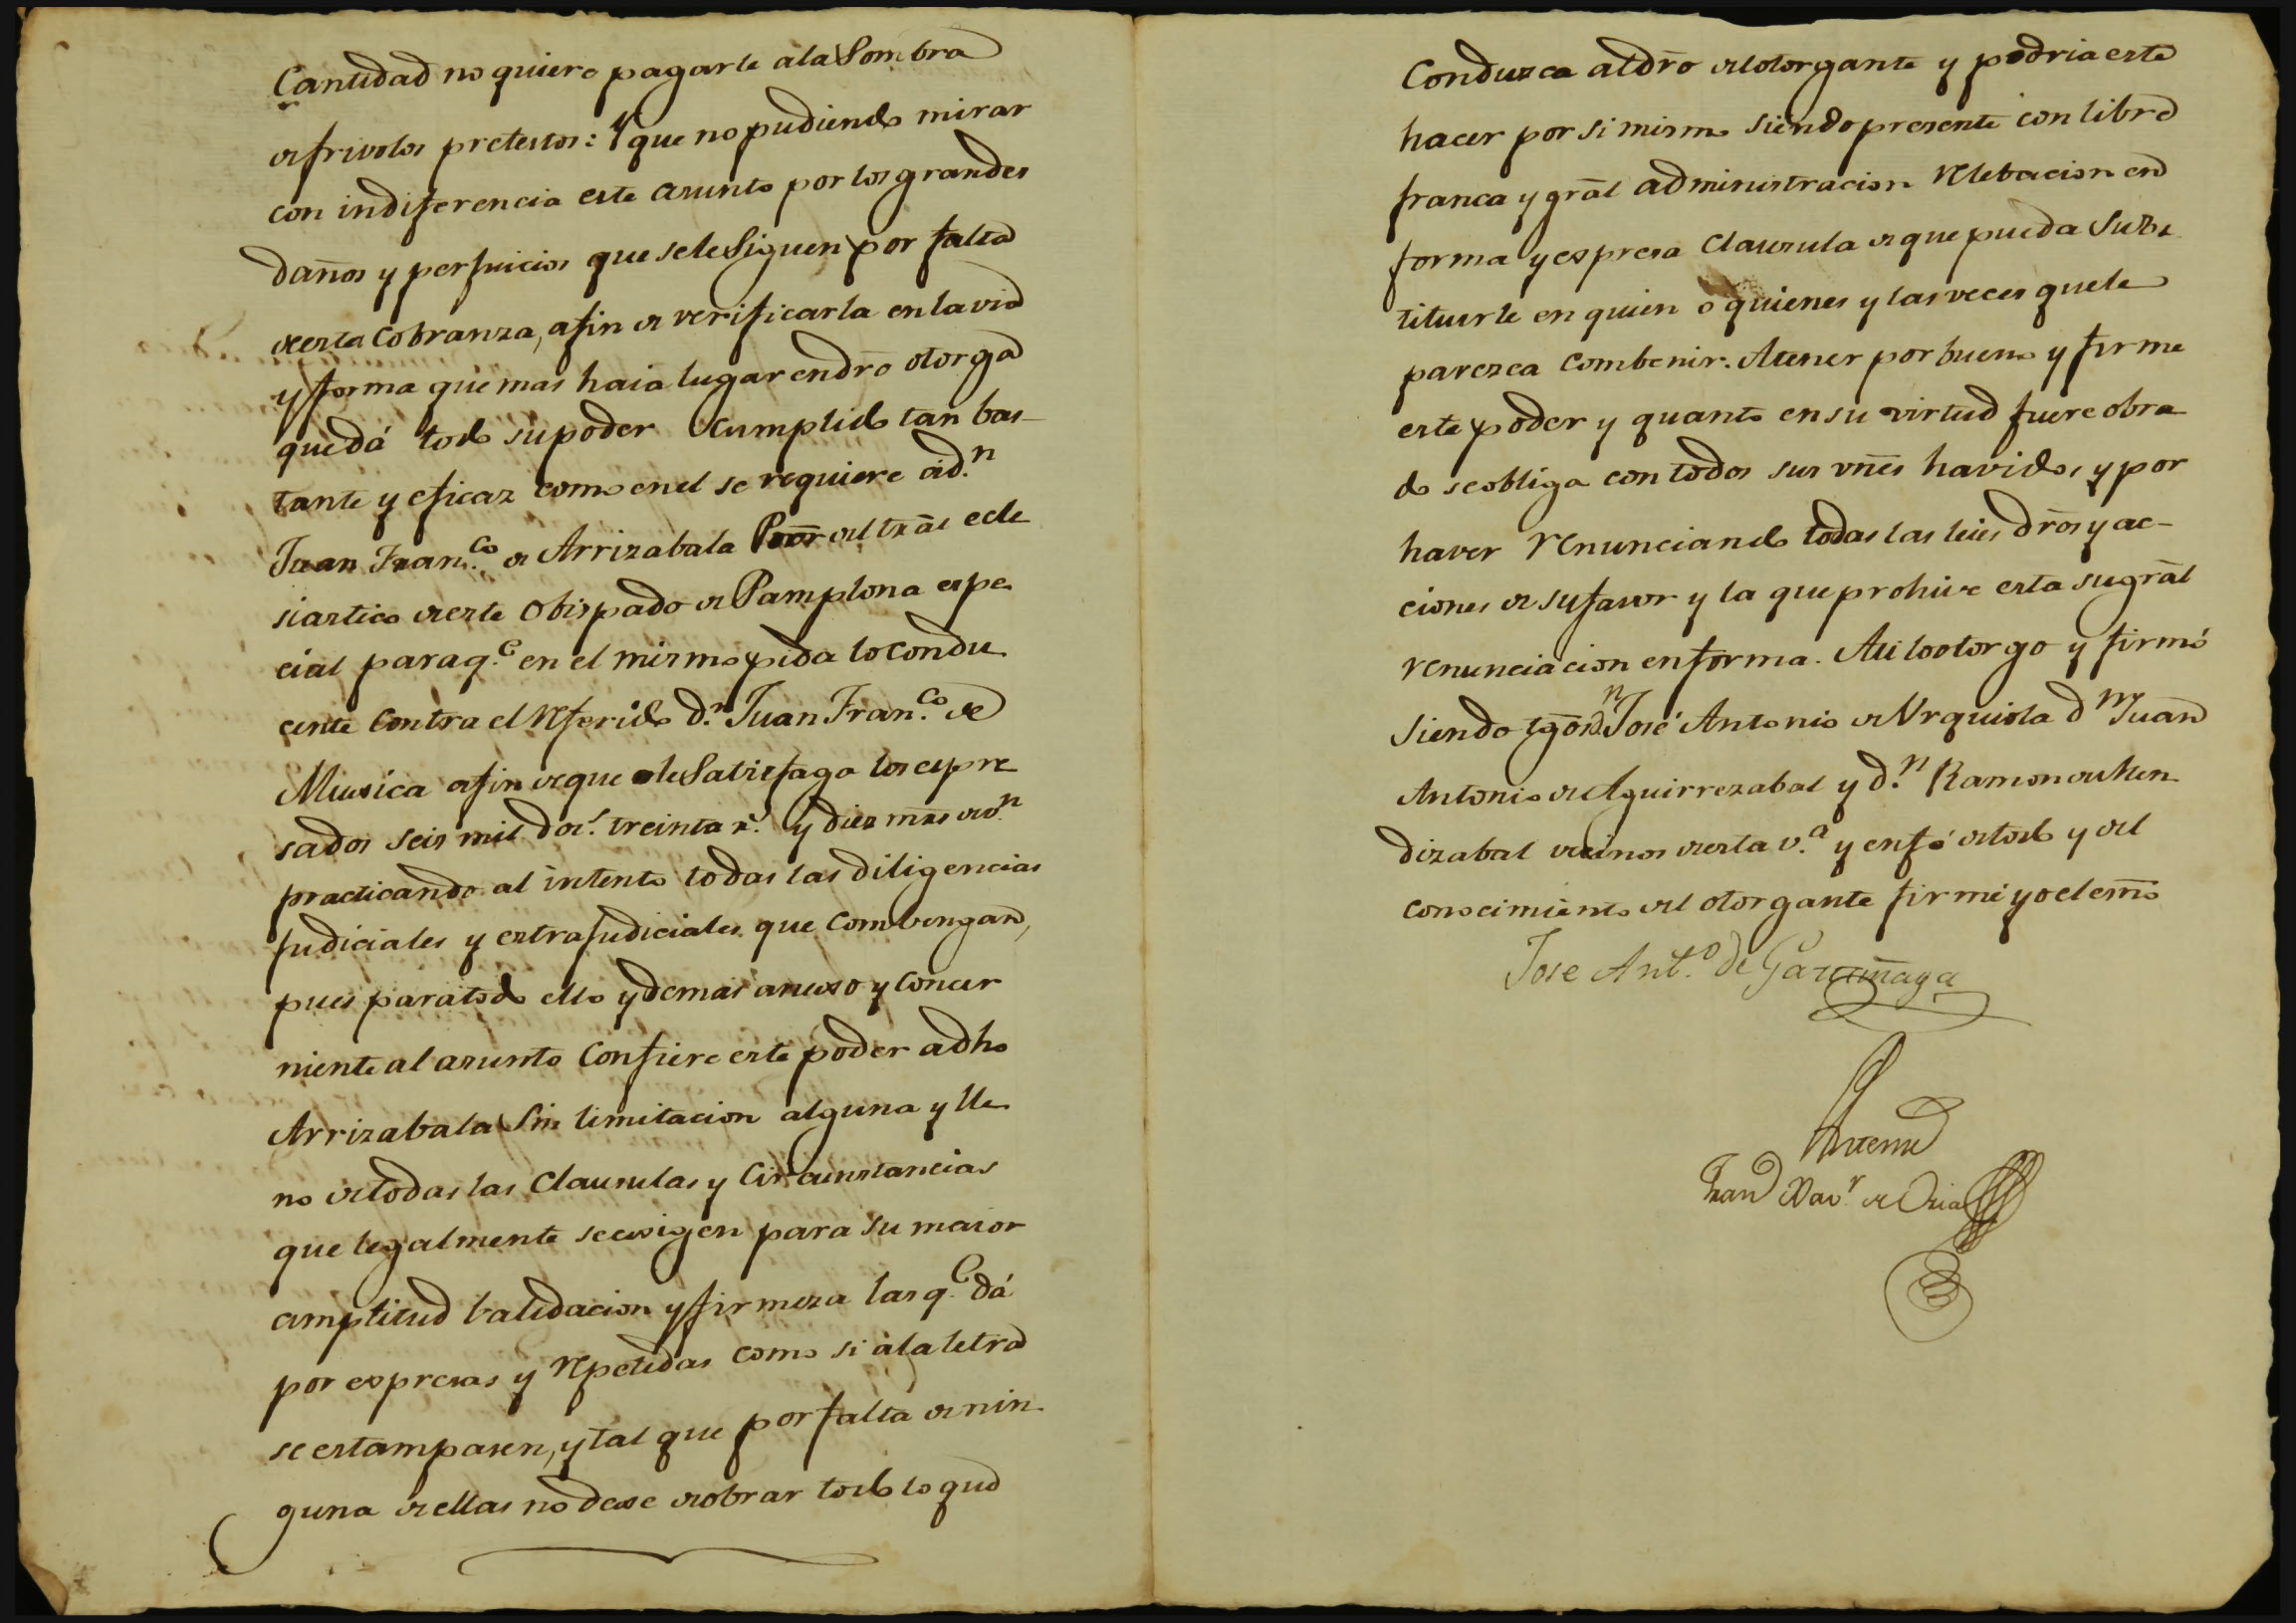 Cantidad no quiere pagarle ala Sombra
de frivolos pretestos: Y que no pudiendo mirar
con indiferencia este asunto por los grandes
daños y perjuicios que sele Siguen por falta
de esta Cobranza, afin de verificarla en la via
y forma que mas haia lugar en dro otorga
que dá todo su poder Cumplido tan bas-
tante y eficaz como en el se requiere á d.n
Juan Fran.co de Arrizabala Pror del tral ecle
siastico de este Obispado de Pamplona espe
cial para q.e en el mismo pida lo condu
cente Contra el referido d.n Juan Fran.co de
Muxica afin de que le Satisfaga los espre
sados seis mil dos.s treinta r.s y diez mrs de v.n
practicando al intento todas las diligencias
Judiciales y extrajudiciales que Combengan,
pues para todo ello y demas anexo y Concer
niente al asunto Confiere este poder a dho
Arrizabala Sin limitacion alguna y lle
no de todas las Clausulas y Circunstancias
que legalmente se exigen para su maior
amplitud balidacion y firmeza las q.e dá
por expresas y repetidas como si ala letra
se estampasen, y tal que por falta de nin
guna de ellas no dexe de obrar todo lo que
Conduzca al dro del otorgante y podria este
hacer por si mismo siendo presente con libre
franca y gral administracion relebacion en
forma y espresa Clausula de que pueda Subs
tituirle en quien o quienes y las veces que le
parezca combenir: A tener por bueno y firme
este poder y quanto en su virtud fuere obra
do se obliga con todos sus vnes havidos y por
haver renunciando todas las leies dros y ac-
ciones de su favor y la que prohive esta su gral
renunciacion en forma. Asi lo otorgo y firmó
Siendo tgos d.n José Antonio de Urquiola d.n Juan
Antonio de Aguirrezabal y d.n Ramon de Men
dizabal vecinos de esta v.a y en fé de todo y del
conocimiento del otorgante firmé yo el esno
Jose Ant.o de Garumaga
Antemi
Fran Xav.r de Oria